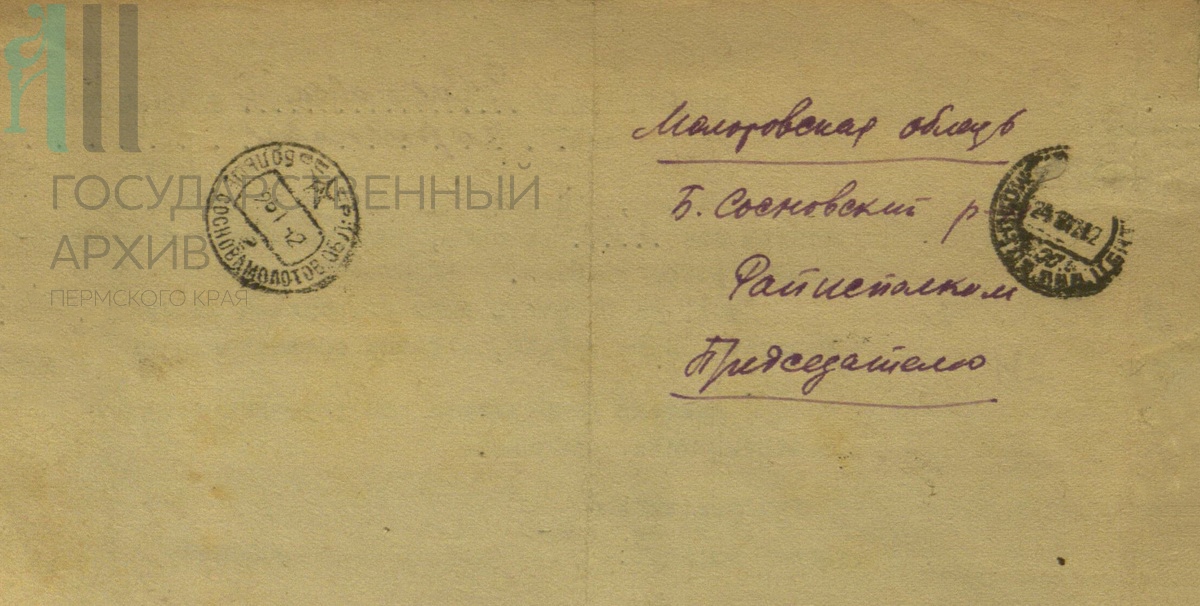 ГОСУДАРСТВЕННЫЙ
АРХИВ
ПЕРМСКОГО КРАЯ
Молотовская область
Б. Сосновский р
Райисполком
Председателю
БОЛЬШ. СОСНОВА МОЛОТОВ